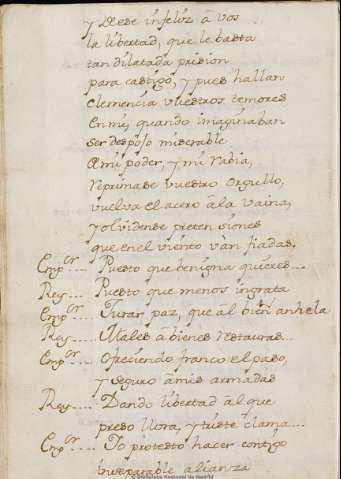 y Dese infeliz â vos
la libertad, que le basta
tan dilatada prision
para castigo, y pues hallan
clemencia vuestros temores
en mi, quando imaginaban
ser despojo miserable
â mi poder, y mi rabia,
reprimase vuestro orgullo,
vuelva el acero â la vaina,
y olvidense pretensiones
que en el viento van fiadas.
Emp.or .... Puesto que benigna quieres...
Rey.... Puesto que menos ingrata
Emp.or .... Jurar paz, que al bien anhela
Rey.... Males â bienes restauras...
Emp.or .... Ofreciendo franco el paso,
y seguro â mis armadas
Rey.... Dando libertad âl que
preso llora, y triste clama...
Emp.or .... Yo protesto hacer contigo
inseparable alianza
© Biblioteca Nacional de Madrid